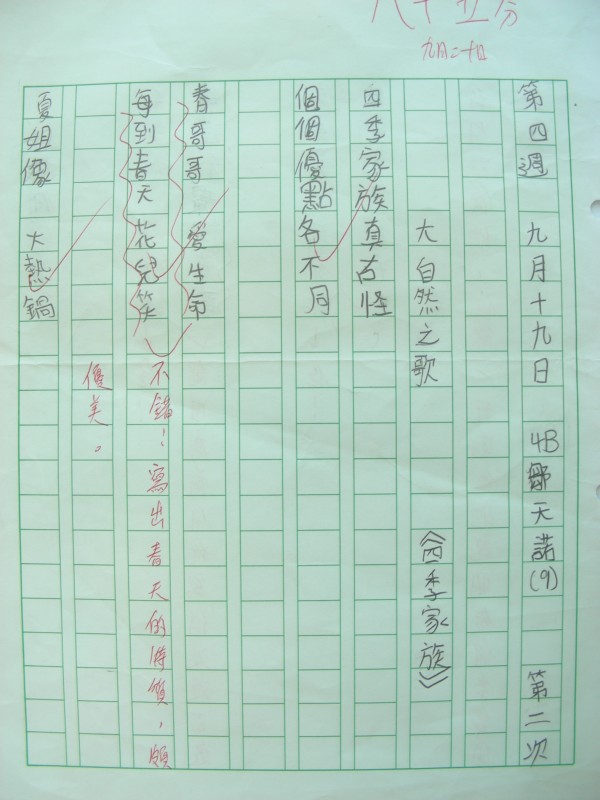 八十五分
九月二十日
第四週 九月十九日 4B鄒天諾(9) 第二次
大自然之歌 《四季家族》
四季家族真古怪
個個優點各不同
春哥哥 愛生命
每到春天花兒笑
不錯！寫出春天的特質，頗
優美。
夏姐像 大熱鍋